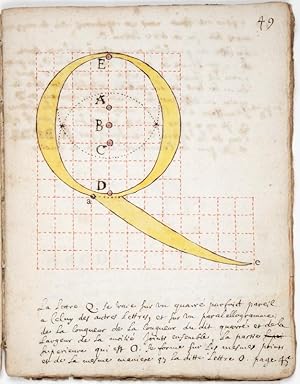 49
E
A
B
C
D
a
e
La Lettre Q se trace sur un quarré parfait pareil
a Celuy des autres Lettres, et sur un parallelogramme
de la Longueur de la Longueur du dit quarré et de la
Largeur de la moitié joints ensemble, la partie
superieure qui est O se forme sur les mesmes
et de la mesme maniere que la ditte Lettre O page